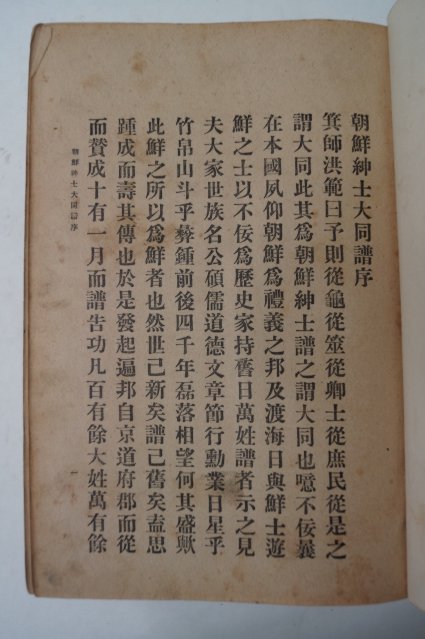 朝鮮紳士大同譜序
箕師洪範曰予則從龜從筮從卿士從庶民從是之
謂大同此其爲朝鮮紳士譜之謂大同也噫不佞曩
在本國夙仰朝鮮爲禮義之邦及渡海日與鮮士遊
鮮之士以不佞爲歷史家持舊日萬姓譜者示之見
夫大家世族名公碩儒道德文章節行勳業日星乎
竹帛山斗乎彛鍾前後四千年磊落相望何其盛歟
此鮮之所以爲鮮者也然世已新矣譜已舊矣盍思
踵成而壽其傳也於是發起遍邦自京道府郡而從
而贊成十有一月而譜告功凡百有餘大姓萬有餘
朝鮮紳士大同譜序
一